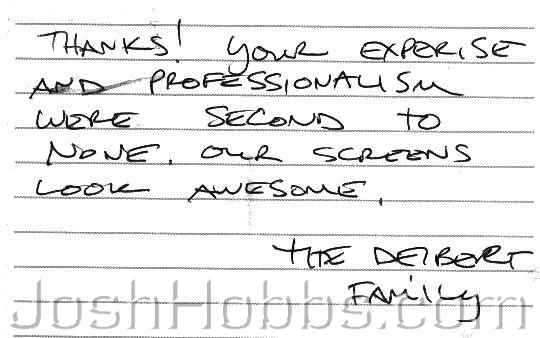 THANKS! YOUR EXPERISE
AND PROFESSIONALISM
WERE SECOND TO
NONE. OUR SCREENS
LOOK AWESOME.
THE DEIBERT
FAMILY
JoshHobbs.com